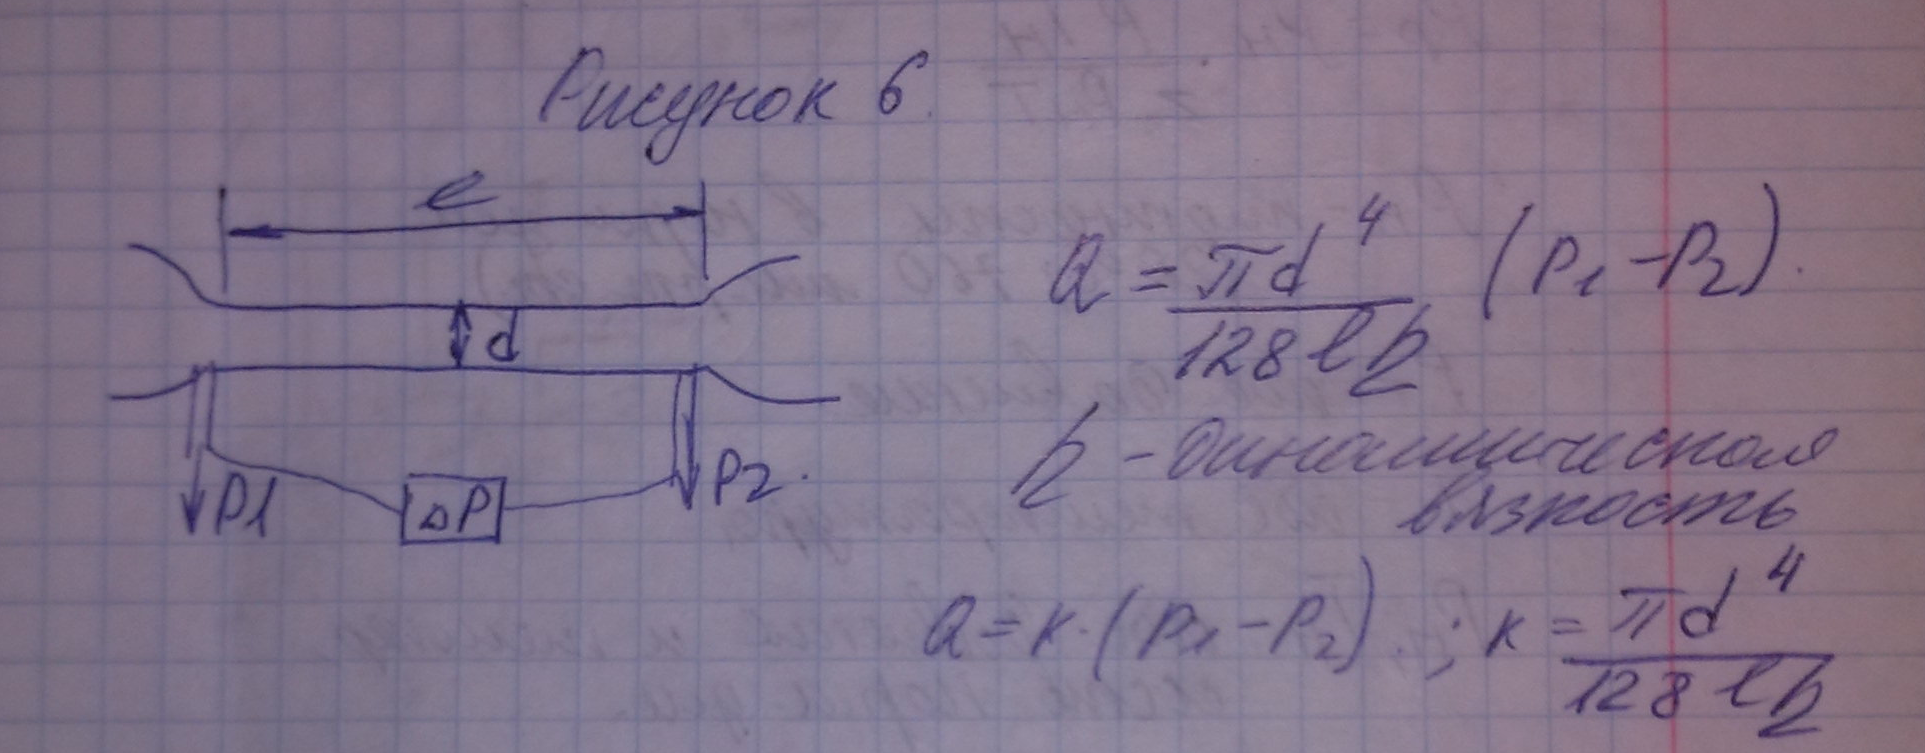 Рисунок 6.
l
d
P1
ΔP
P2.
Q = πd⁴ / 128 l η (P₁ - P₂).
η - динамическая
вязкость
Q = K · (P₁ - P₂).; K = πd⁴ / 128 l η